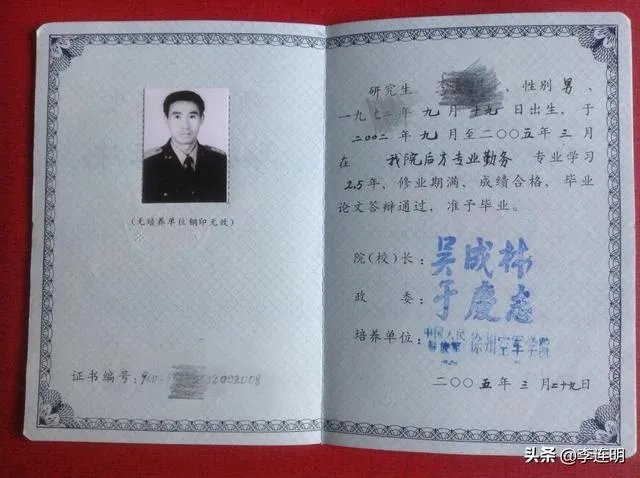 (无培养单位钢印无效)
证书编号:
研究生 , 性别男,
一九七二年九月十九日出生,于
二〇〇二年九月至二〇〇五年三月
在 我院后方专业勤务 专业学习
2.5年,修业期满,成绩合格,毕业
论文答辩通过,准予毕业。
院(校)长:吴成林
政 委:于慶志
培养单位:中国人民解放军 徐州空军学院
二〇〇五年三月二十九日
头条 @李连明